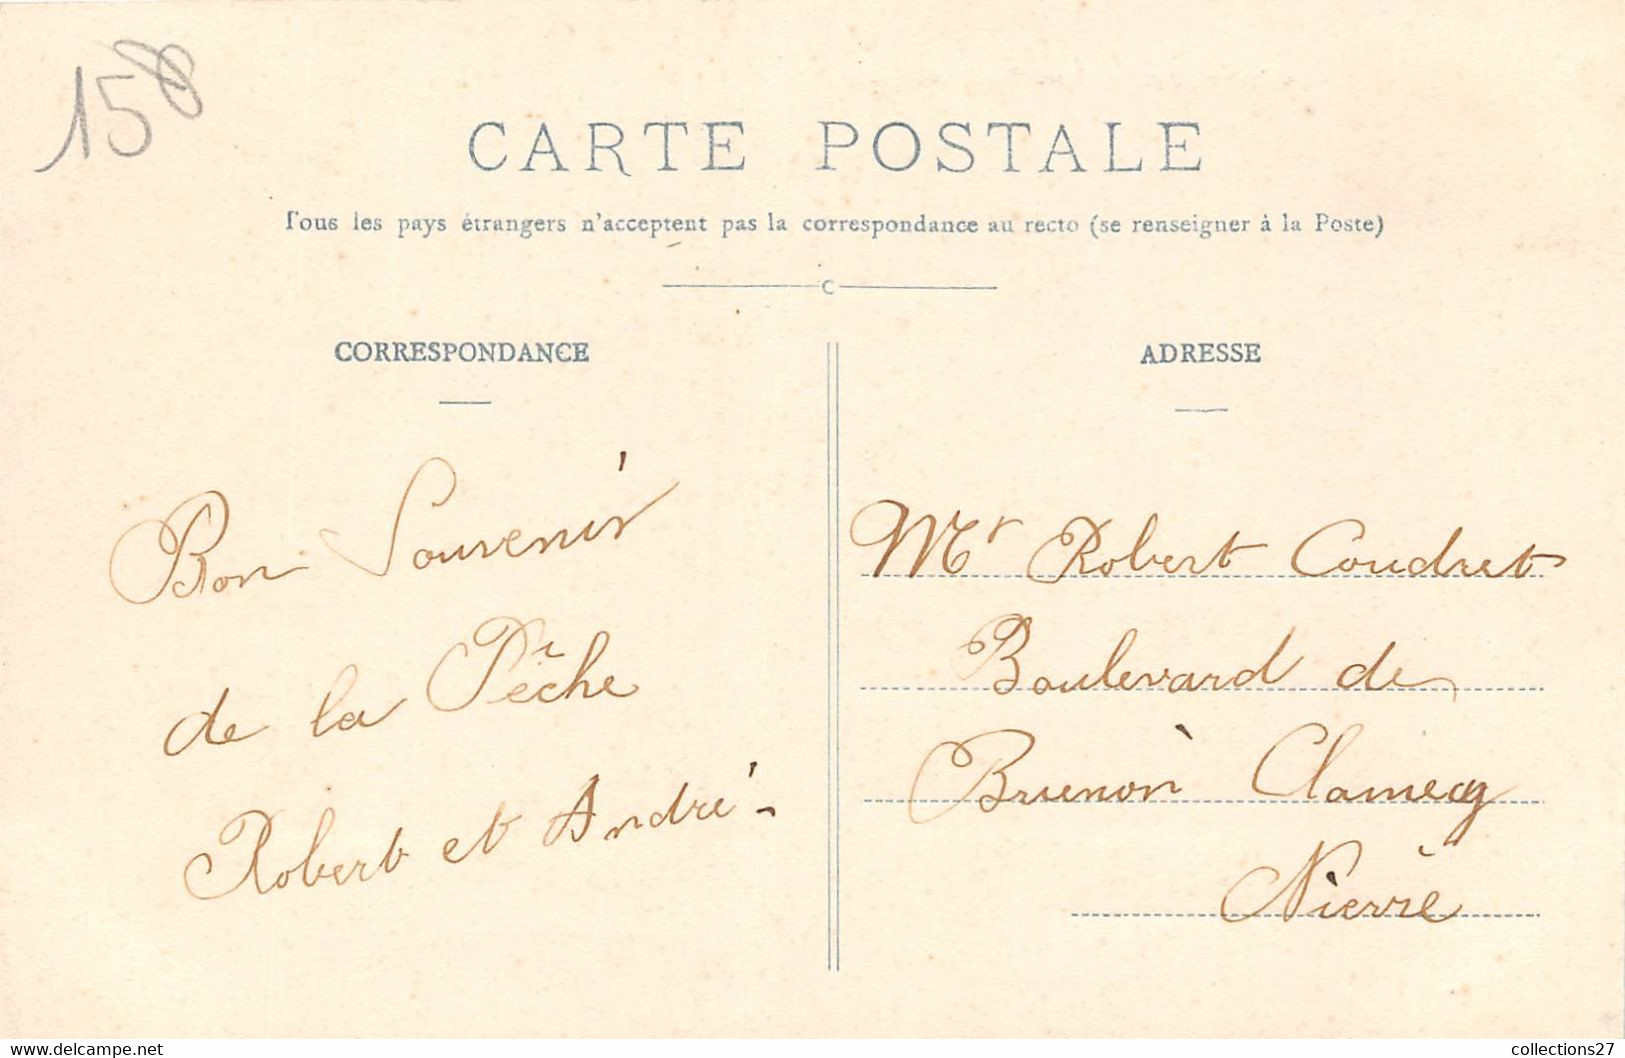 158
CARTE POSTALE
Tous les pays étrangers n'acceptent pas la correspondance au recto (se renseigner à la Poste)
C
CORRESPONDANCE
Bon Souvenir
de la Pêche
Robert et André -
ADRESSE
Mr Robert Coudret
Boulevard de
Brunon Clamecy
Nievre
www.delcampe.net
collections27